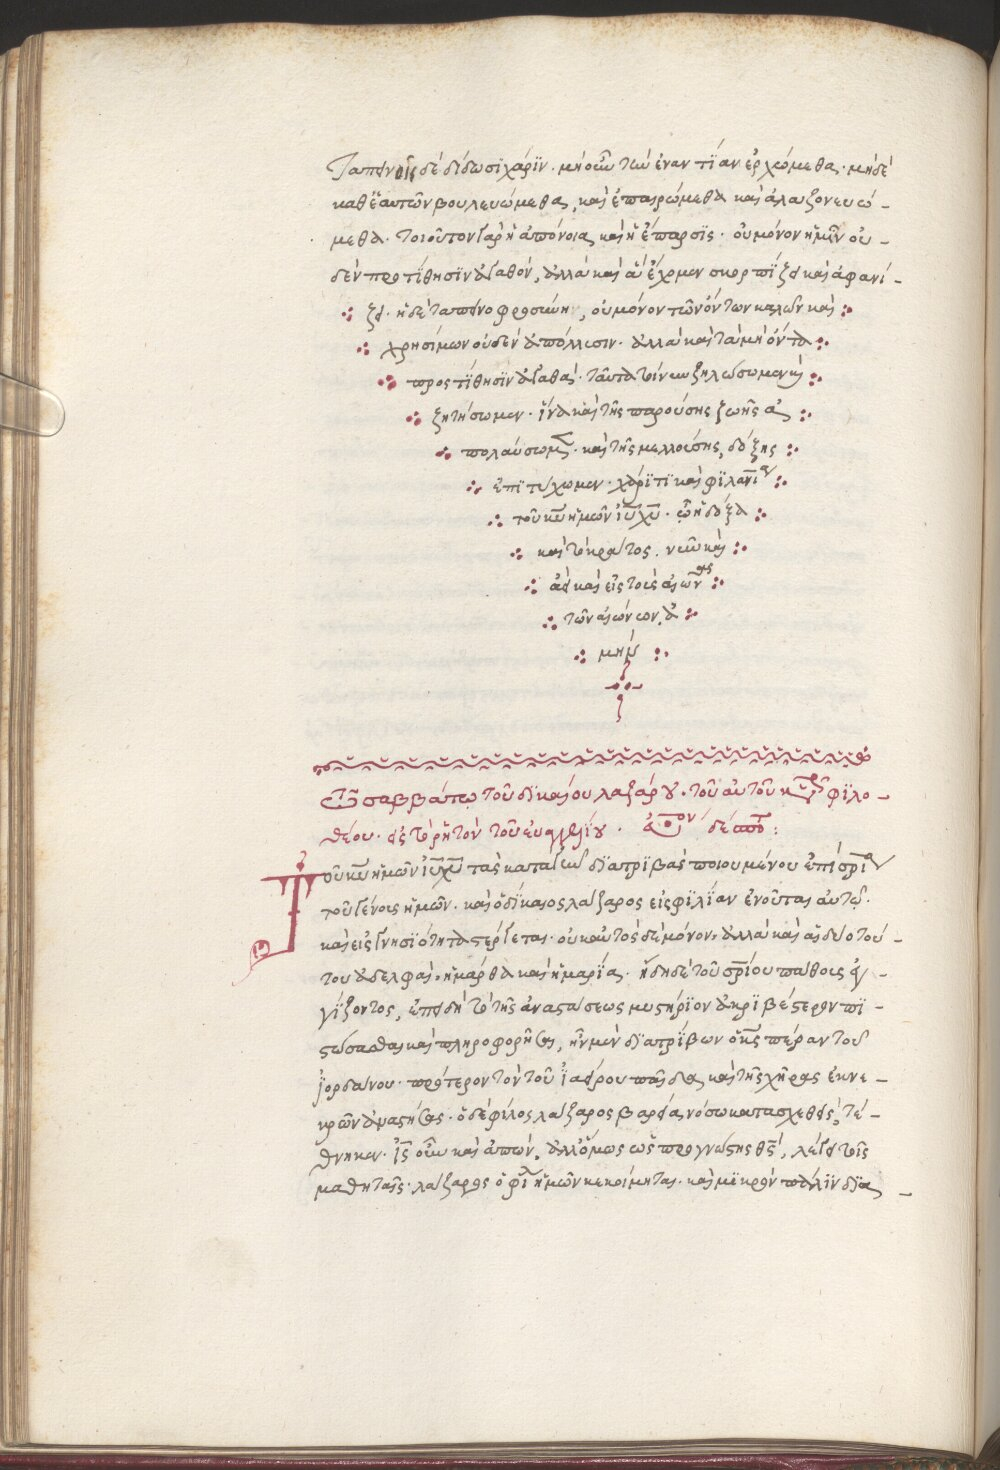 ταπεινοῖς δὲ δίδωσϊ χάρϊν· μὴ οὖν τῶ ἐναντΐαν ἐρχώμεθα· μηδὲ
καθ' ἑαυτῶν βουλευώμεθα, καὶ ἐπαιρώμεθα καὶ ἀλαζονευώ-
μεθα· τοιοῦτον γὰρ ἡ ἀπόνοια καὶ ἡ ἔπαρσϊς· οὐ μόνον ἡμῖν οὐ-
δὲν προτίθησϊν ἀγαθόν, ἀλλὰ καὶ ἃ ἔχομεν σκορπΐζει καὶ ἀφανί-
ζει· ἡ δὲ ταπεινοφροσύνη, οὐ μόνον τῶν ὄντων καλῶν καὶ
χρησίμων οὐδὲν ἀπόλλεσιν· ἀλλὰ καὶ τὰ μὴ ὄντα
προστίθησϊν ἀγαθά· ταῦτα τοίνυν ζηλώσωμεν καὶ
ζητήσωμεν· ἵνα καὶ τῆς παρούσης ζωῆς ἀ
πολαύσωμεν· καὶ τῆς μελλούσης δόξης
ἐπιτύχωμεν· χάρϊτϊ καὶ φϊλανϊα
τοῦ κυ ἡμῶν ιυ χυ· ᾧ ἡ δόξα
καὶ τὸ κράτος, νῦν καὶ
ἀεὶ καὶ εἰς τοὺς αἰῶνας
τῶν αἰώνων, ἀ
μήν
Τῶ σαββάτῳ τοῦ δϊκαίου λαζάρου· τοῦ αὐτοῦ κυρ φϊλο-
θέου· εἰς τὸ ῥητὸν τοῦ εὐαγγελίου· δέσπο:
Τοῦ κυ ἡμῶν ιυ χυ τὰς κατὰ γῆν δϊατρϊβὰς ποιουμένου ἐπὶ σρϊα
τοῦ γένους ἡμῶν· καὶ ὁ δΐκαιος λάζαρος εἰς φϊλΐαν ἑνοῦται αὐτῷ·
καὶ εἰς γνησϊότητα στέργεται· οὐκ αὐτὸς δὲ μόνον, ἀλλὰ καὶ αἱ δύο τού-
του ἀδελφαί, ἡ μάρθα καὶ ἡ μαρΐα· ἤδη δὲ τοῦ σρϊου πάθους ἐγ-
γΐζοντος, ἐπειδὴ τὸ τῆς ἀναστάσεως μυστήρϊον ἀκρϊβέστερον πϊ-
στώσασθαι καὶ πληροφορῆσαι, ἦν μὲν δϊατρΐβων ὁ ις πέραν τοῦ
ἰορδάνου· πρότερον τὸν τοῦ ἰαείρου παῖδα, καὶ τῆς χήρας ἐκ νε-
κρῶν ἀναστήσας· ὁ δὲ φίλος λάζαρος βαρείᾳ νόσω κατασχεθείς, τέ-
θνηκεν· ις οὖν καὶ ἀπών, ἀλλ' ὅμως ὡς προγνώστης θς, λέγει τοῖς
μαθηταῖς· λάζαρος ὁ φϊλ ἡμῶν κεκοίμηται· καὶ μϊκρὸν πάλϊν δϊα-